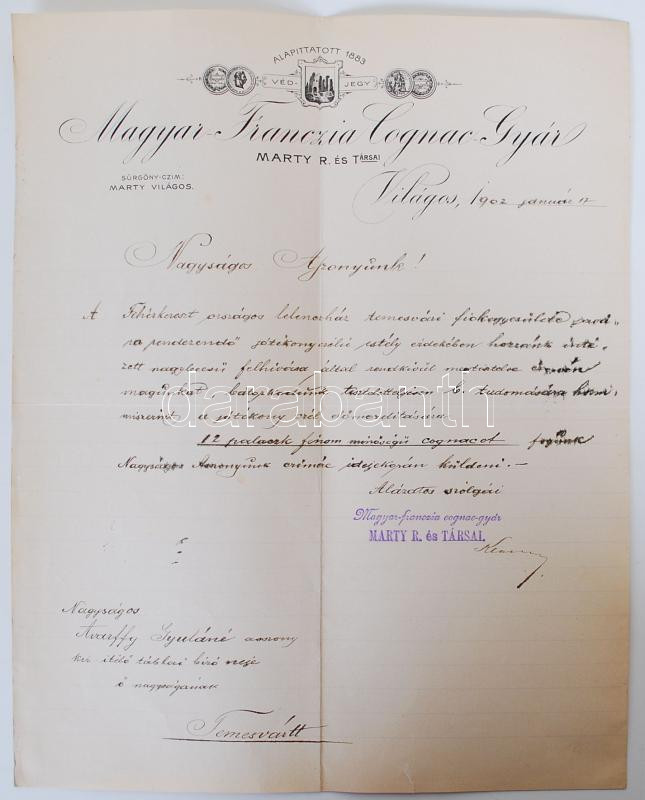 ALAPITTATOTT 1883
VÉD- JEGY
Magyar-Franczia Cognac-Gyár
MARTY R. ÉS TÁRSAI
SÜRGÖNY-CZIM:
MARTY VILÁGOS.
Világos, 1902 január 17
Nagyságos Asszonyunk!
A Fehérkereszt országos lelenczház temesvári fiókegyesülete javá-
ra rendezendő jótékonyczélú estély érdekében hozzánk inté-
zett nagybecsű felhívása által rendkívül megtisztelve érezvén
magunkat, bátorkodunk tudomására hozni
miszerint a jótékony czél előmozdítására
12 palaczk finom minőségű cognacot fogunk
Nagyságos Asszonyunk czímére idejekorán küldeni. —
Alázatos szolgái
Magyar-franczia cognac-gyár
MARTY R. és TÁRSAI.
Nagyságos
Avarffy Gyuláné asszony
kir. itélő táblai biró neje
ő nagyságának
Temesvártt
darabanth